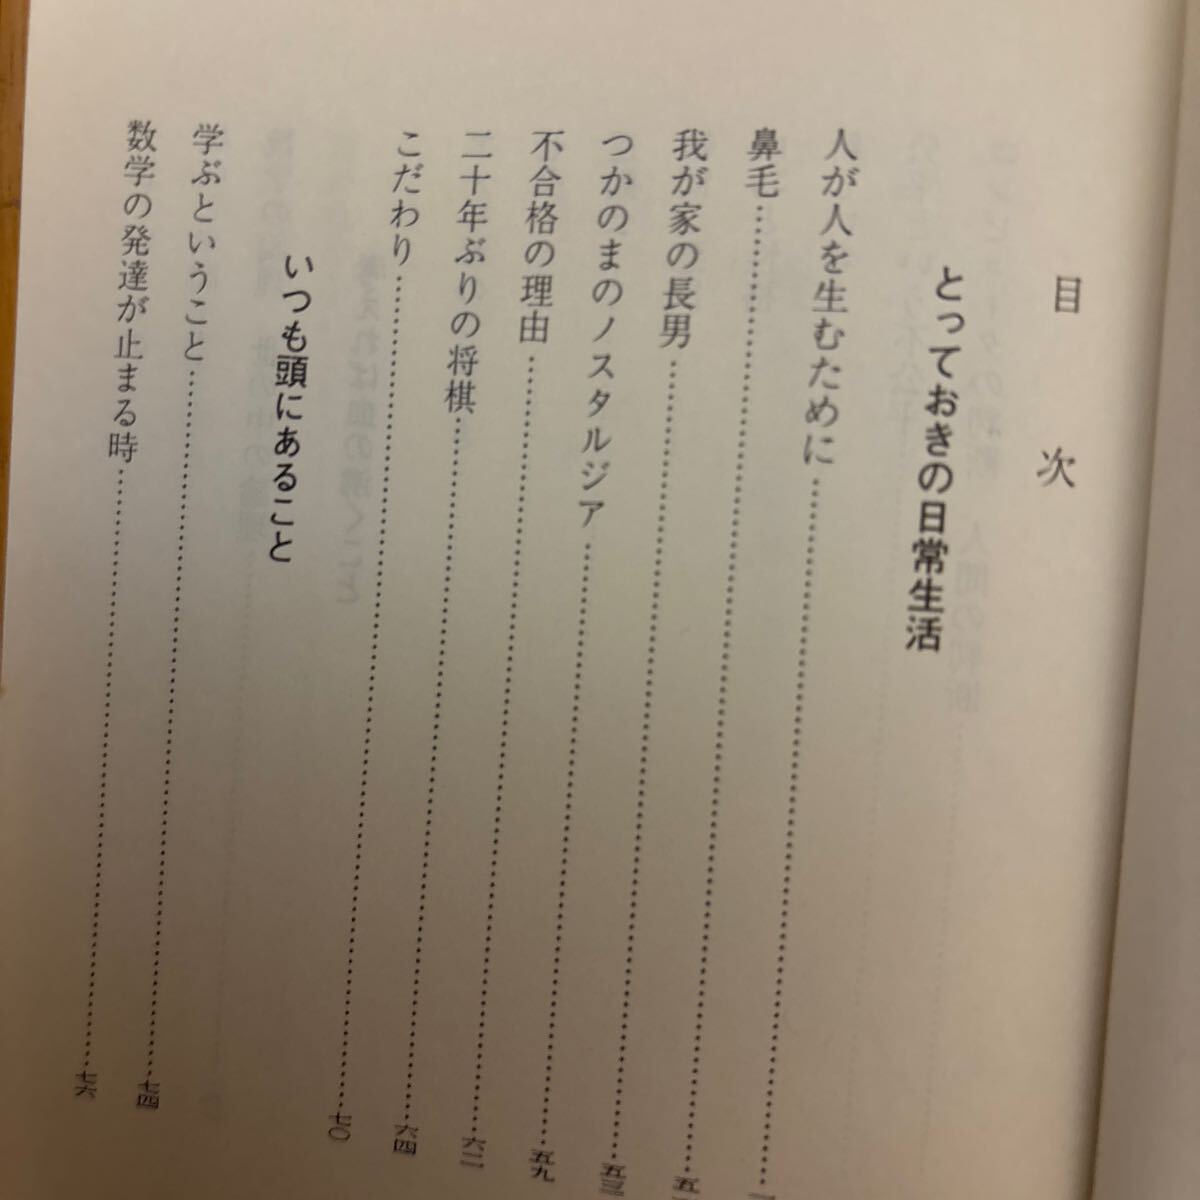 目次
とっておきの日常生活
人が人を生むために
鼻毛
我が家の長男 五三
つかのまのノスタルジア 五九
不合格の理由 六二
二十年ぶりの将棋 六四
こだわり 七〇
いつも頭にあること
学ぶということ 七四
数学の発達が止まる時 七六